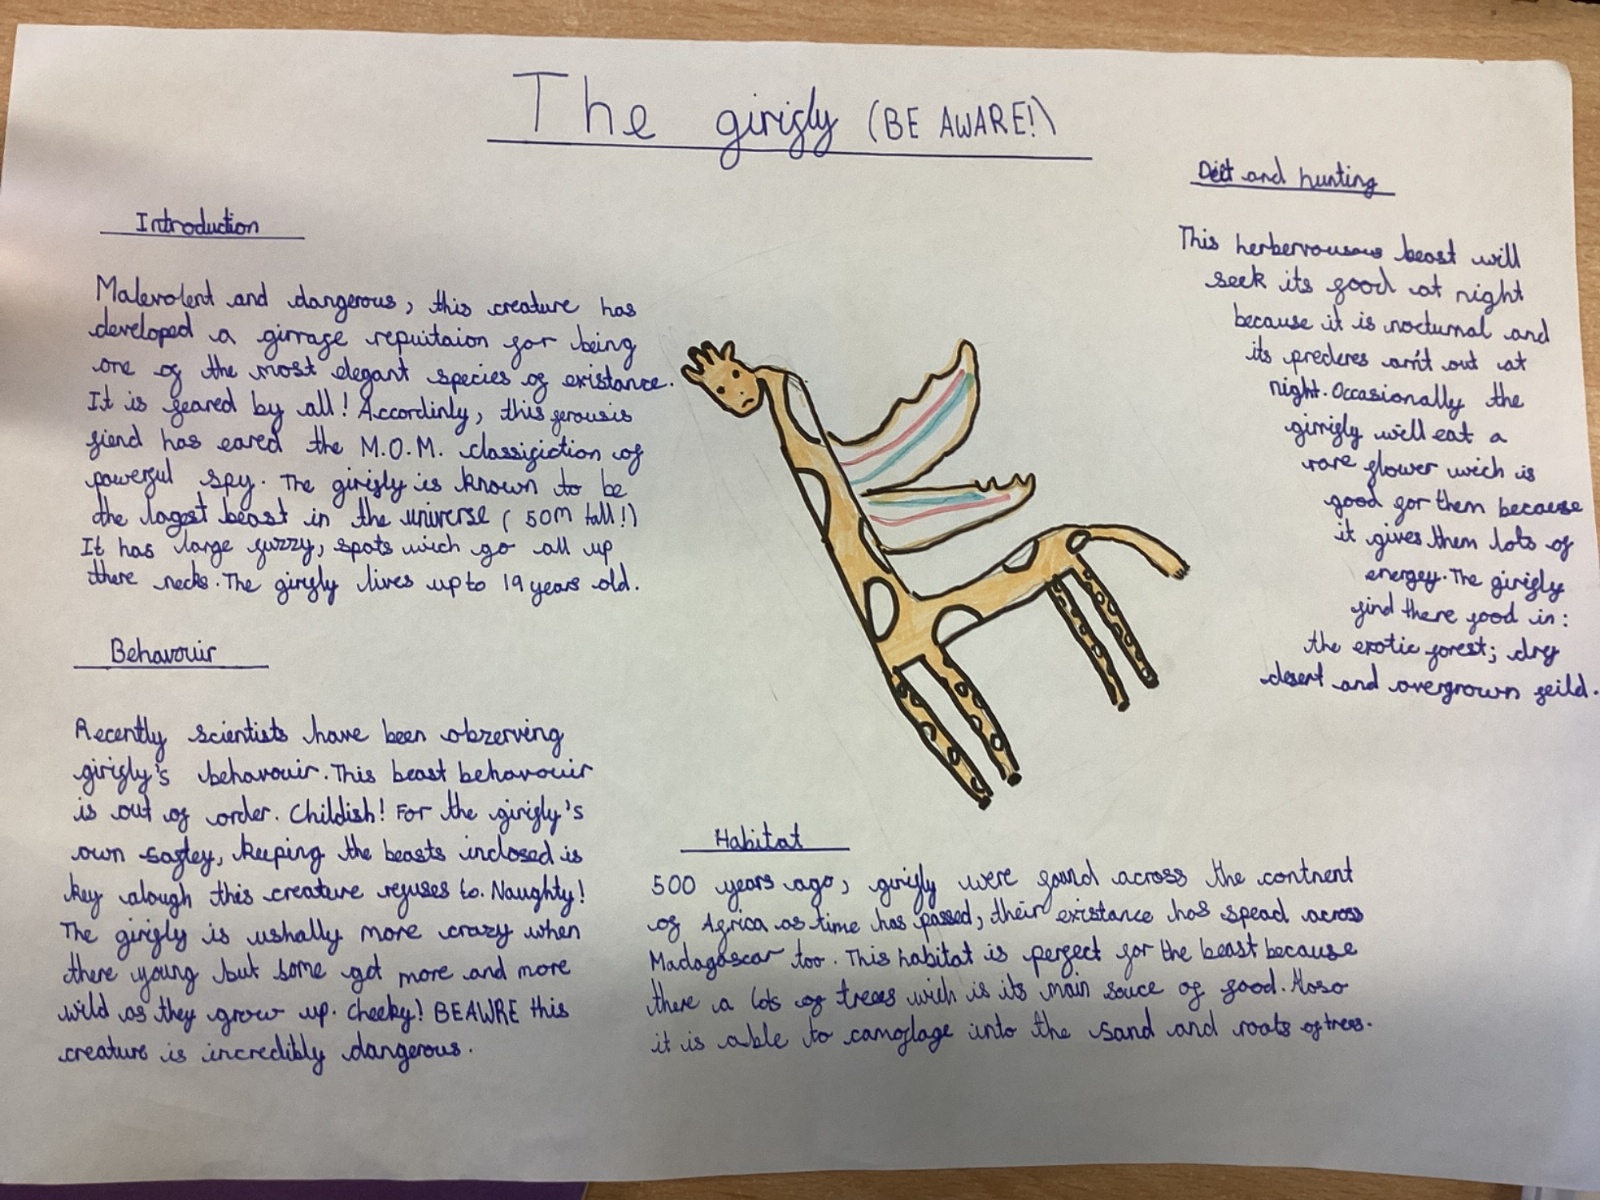 The girifly (BE AWARE!)
Introduction
Malevolent and dangerous, this creature has
developed a girrafe repuitaion for being
one of the most elegant species of existance.
It is feared by all! Accordinly, this ferousis
fiend has eared the M.O.M. classifiction of
powerful spy. The girifly is known to be
the lagest beast in the universe ( 50m tall!)
It has large fuzzy, spots wich go all up
there necks. The girifly lives up to 19 years old.
Behavouir
Recently scientists have been obzerving
girifly's behavouir. This beast behavouir
is out of order. Childish! For the girifly's
own saftey, keeping the beasts inclosed is
key alough this creature refuses to. Naughty!
The girifly is ushally more crazy when
there young but some get more and more
wild as they grow up. Cheeky! BEAWRE this
creature is incredibly dangerous.
Diet and hunting
This herbervousous beast will
seek its food at night
because it is nocturnal and
its prederes arn't out at
night. Occasionally the
girrifly will eat a
rare flower wich is
good for them because
it gives them lots of
energey. The girifly
find there food in:
the exotic forest; dry
desert and overgrown feild.
Habitat
500 years ago, girifly were found across the contnent
of Africa as time has passed, their existance has spead across
Madagascar too. This habitat is perfect for the beast because
there a lots of trees wich is its main souce of food. Also
it is able to camoflage into the sand and roots of trees.